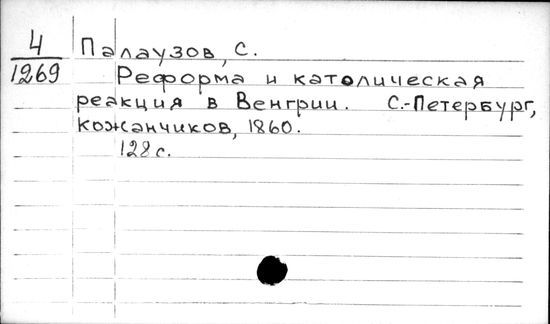 4
1269
Палаузов, С.
Реформа и католическая
реакция в Венгрии. С.-Петербург,
кожанчиков, 1860.
128 с.